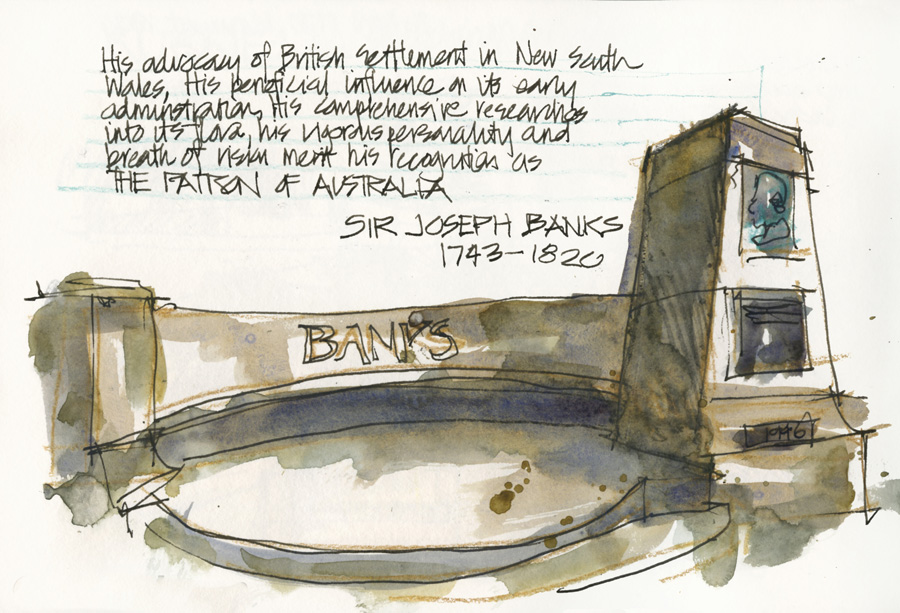 His advocacy of British settlement in New South
Wales, His beneficial influence on its early
administration, His comprehensive researches
into its flora, his vigorous personality and
breath of vision merit his recognition as
THE PATRON OF AUSTRALIA
SIR JOSEPH BANKS
1743-1820
BANKS
1946